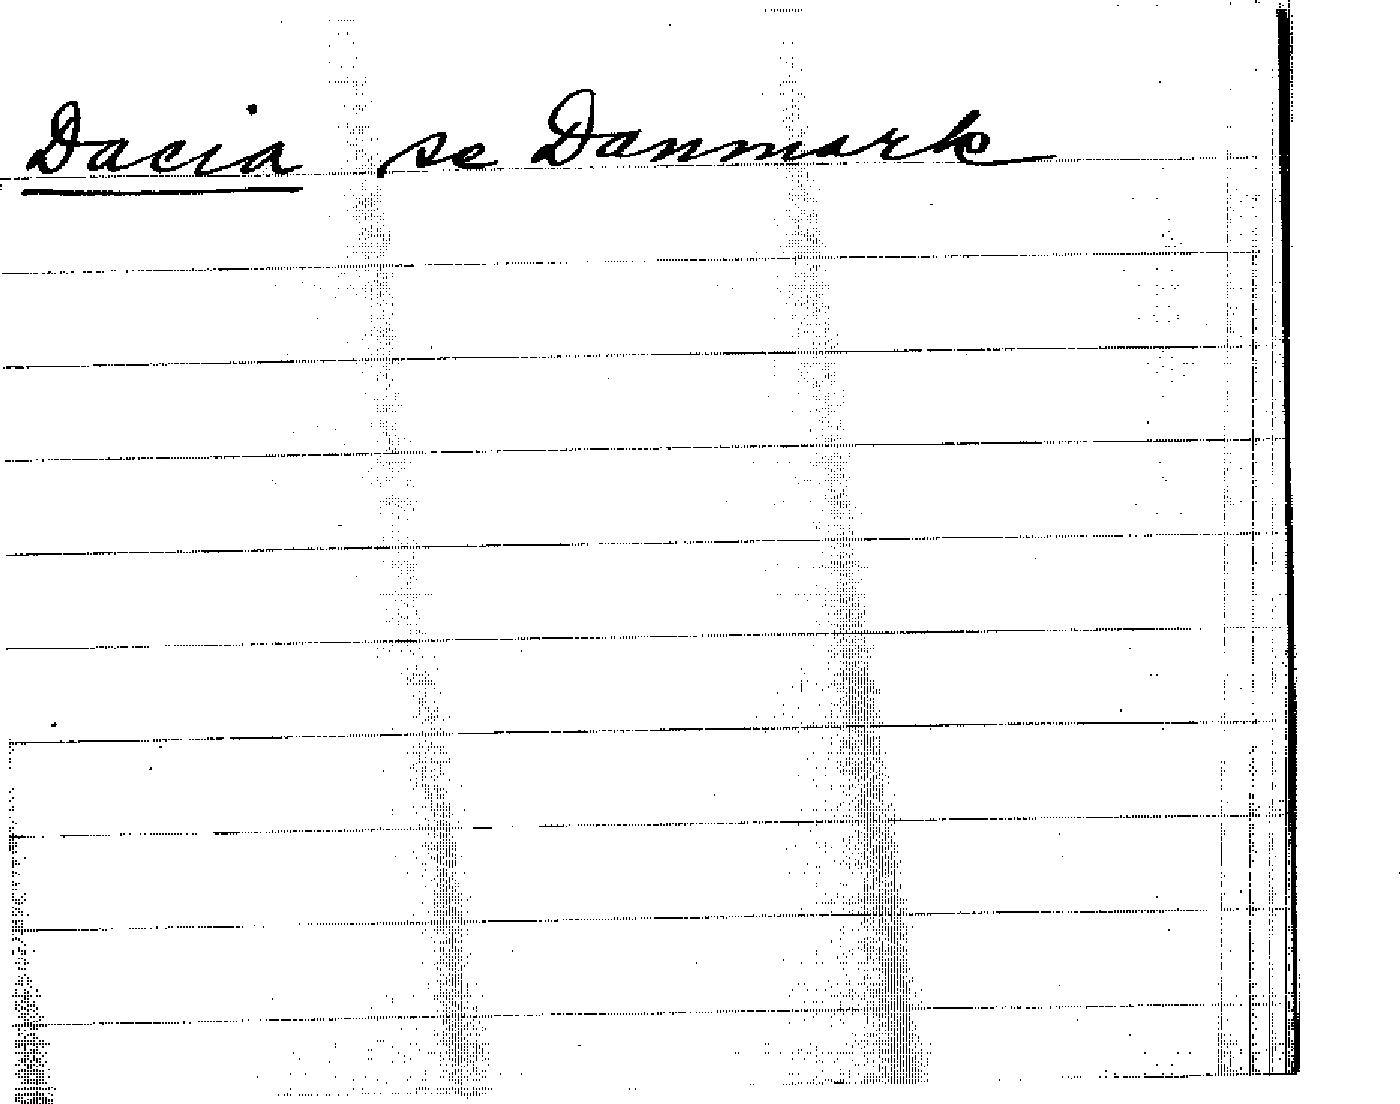 Dacia se Danmark